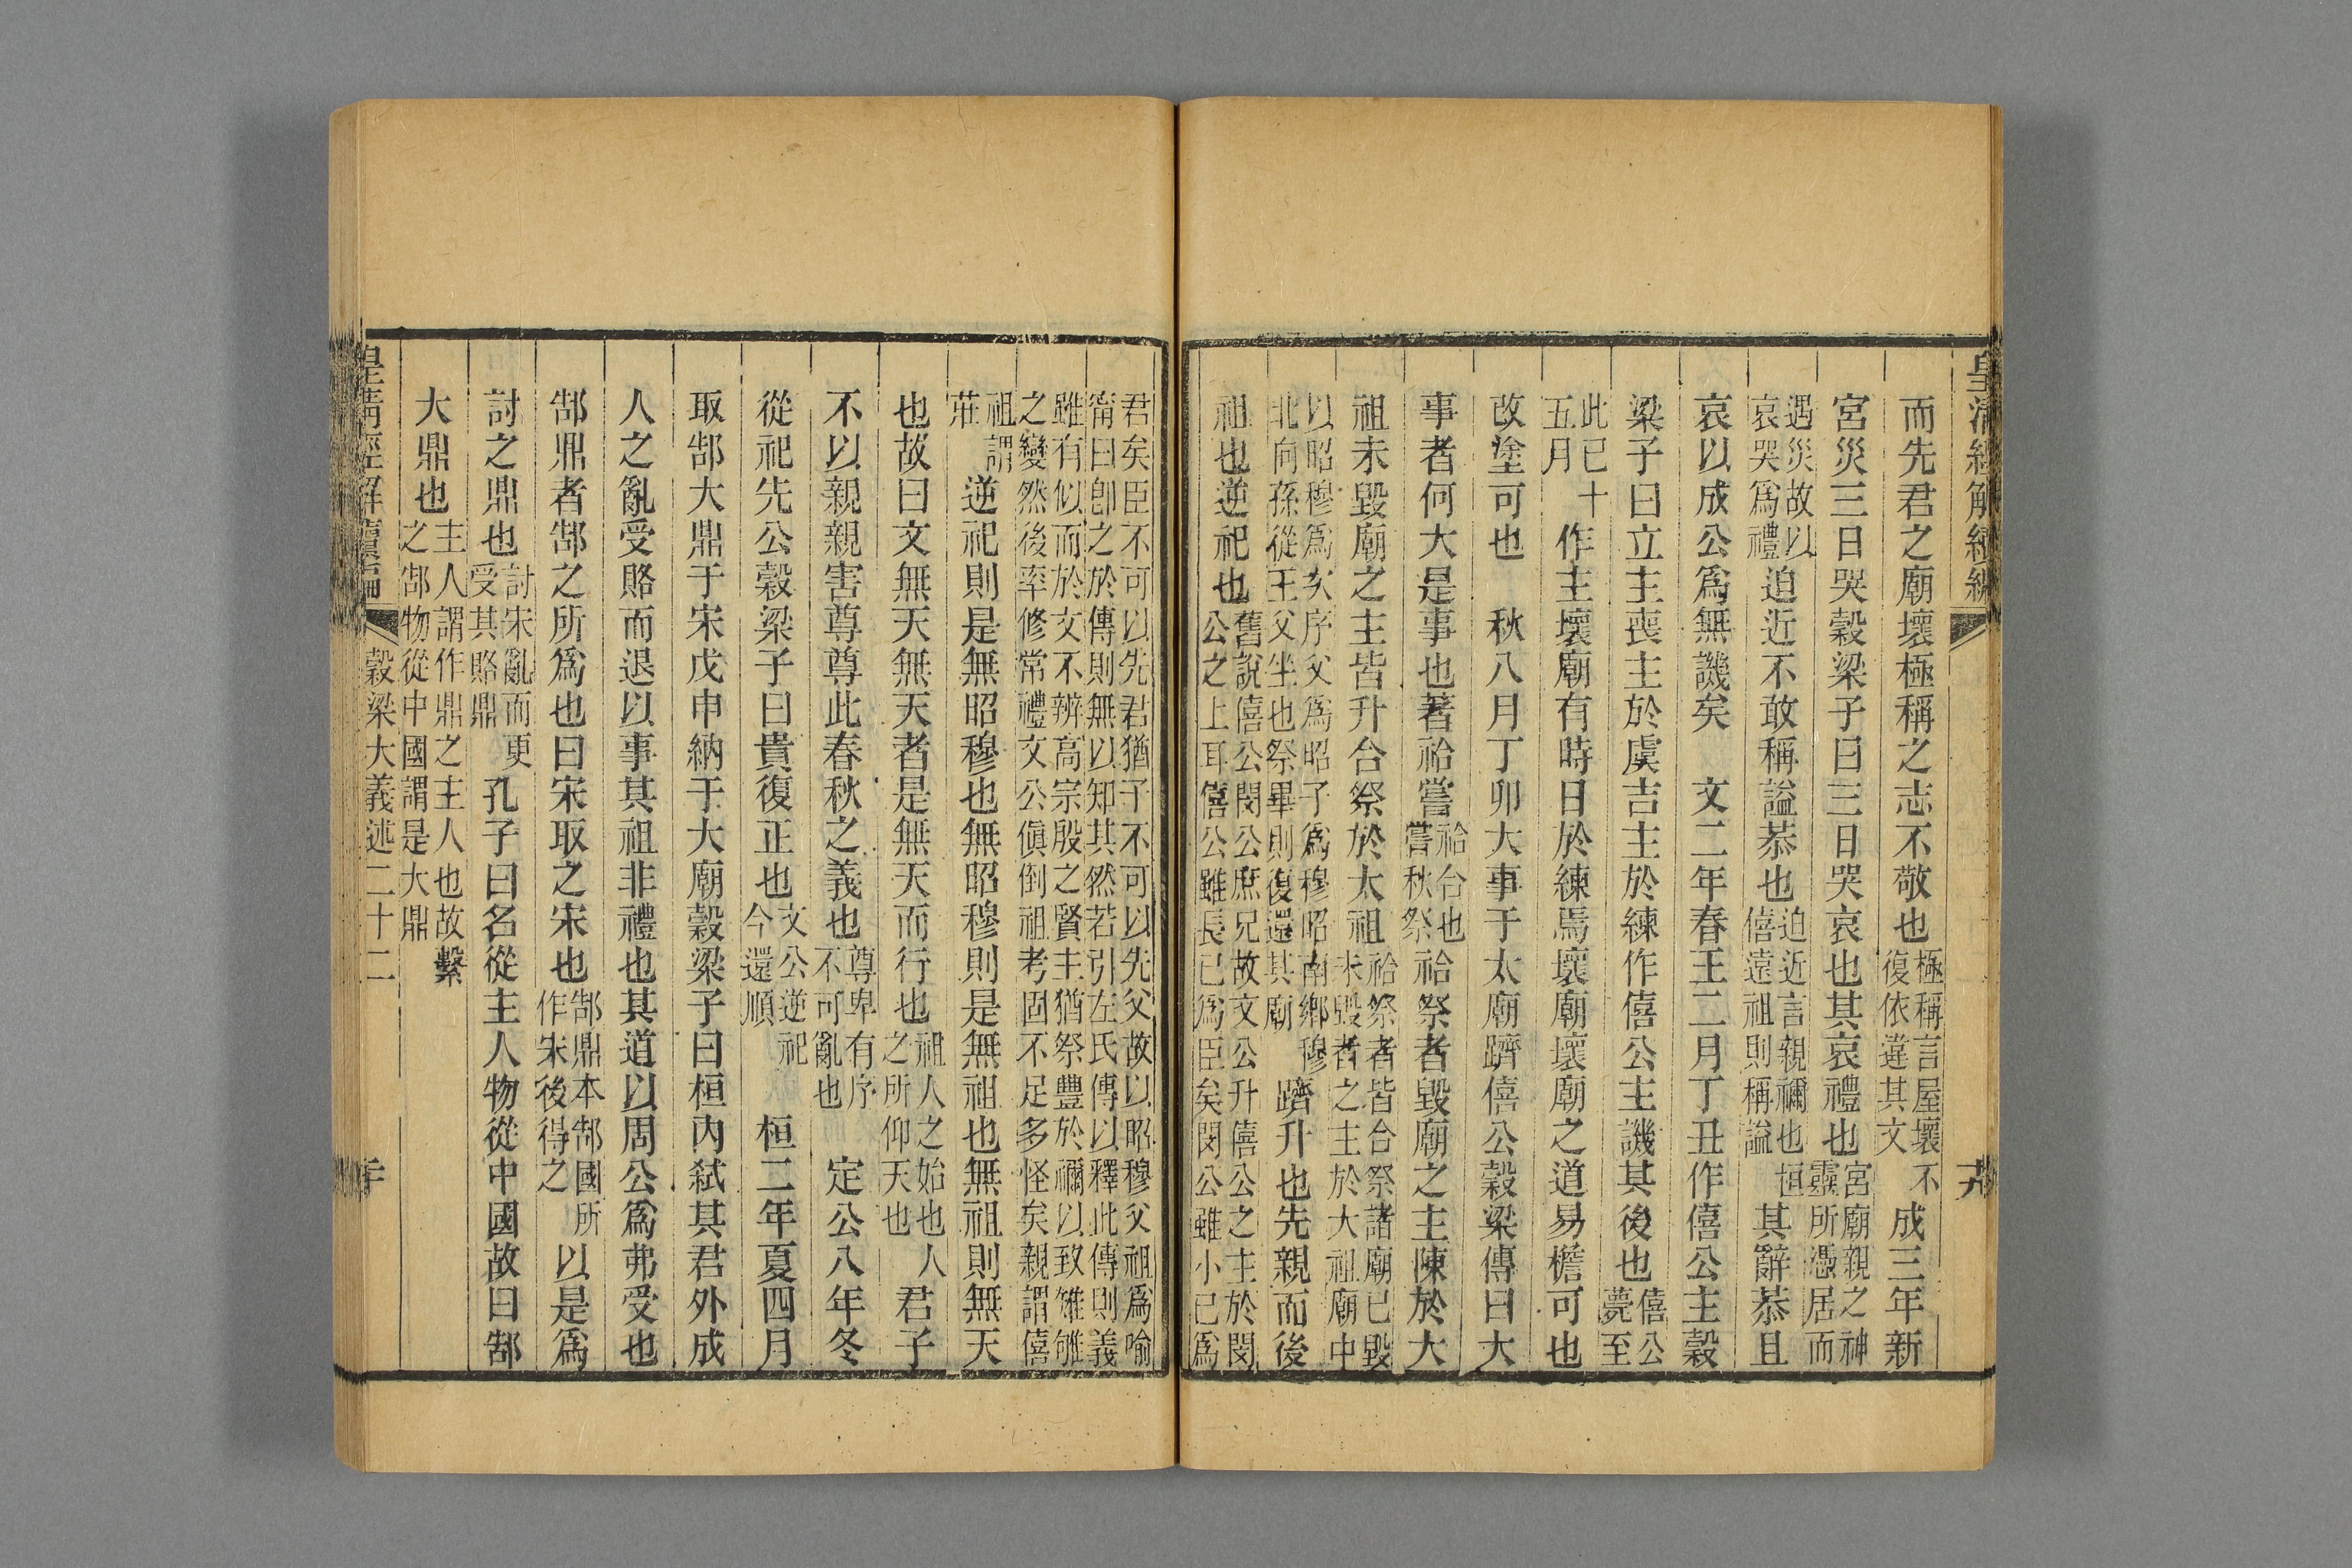 皇清經解續編
而先君之廟壞極稱之志不敬也極稱言屋壞不復依違其文成三年新
宮災三日哭穀梁子曰三日哭哀也其哀禮也宮廟親之神靈所憑居而
遇災故以哀哭爲禮迫近不敢稱謚恭也迫近言親禰也桓僖遠祖則稱謚其辭恭且
哀以成公爲無譏矣　文二年春王二月丁丑作僖公主穀
梁子曰立主喪主於虞吉主於練作僖公主譏其後也僖公薨至
此已十五月作主壞廟有時日於練焉壞廟壞廟之道易檐可也
改塗可也　秋八月丁卯大事于太廟躋僖公穀梁傳曰大
事者何大是事也著祫嘗祫合也嘗秋祭祫祭者毀廟之主陳於大
祖未毀廟之主皆升合祭於太祖祫祭者皆合祭諸廟已毀未毀者之主於大祖廟中
以昭穆爲次序父爲昭子爲穆昭南鄉穆北向孫從王父坐也祭畢則復還其廟躋升也先親而後
祖也逆祀也舊說僖公閔公庶兄故文公升僖公之主於閔公之上耳僖公雖長已爲臣矣閔公雖小已爲
君矣臣不可以先君猶子不可以先父故以昭穆父祖爲喻甯曰卽之於傳則無以知其然若引左氏傳以釋此傳則義
雖有似而於文不辨高宗殷之賢主猶祭豐於禰以致雉雊之變然後率修常禮文公傎倒祖考固不足多怪矣親謂僖
祖謂莊逆祀則是無昭穆也無昭穆則是無祖也無祖則無天
也故曰文無天無天者是無天而行也祖人之始也人之所仰天也君子
不以親親害尊尊此春秋之義也尊卑有序不可亂也　定公八年冬
從祀先公穀梁子曰貴復正也文公逆祀今還順　桓二年夏四月
取郜大鼎于宋戊申納于大廟穀梁子曰桓内弑其君外成
人之亂受賂而退以事其祖非禮也其道以周公爲弗受也
郜鼎者郜之所爲也曰宋取之宋也郜鼎本郜國所作宋後得之以是爲
討之鼎也討宋亂而更受其賂鼎孔子曰名從主人物從中國故曰郜
大鼎也主人謂作鼎之主人也故繫之郜物從中國謂是大鼎
皇清經解續編　穀梁大義述二十二